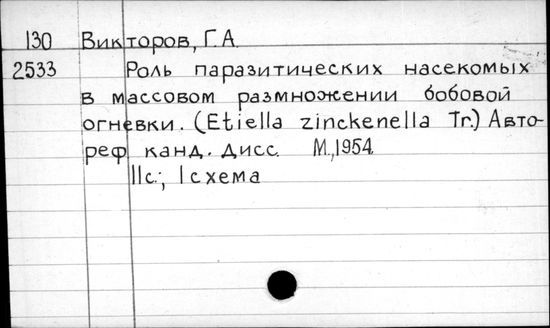 130 Викторов, Г.А.
2533 Роль паразитических насекомых
в массовом размножении бобовой
огневки. (Etiella zinckenella Tr.) Авто-
реф. канд. дисс. М., 1954.
11с.; 1 схема